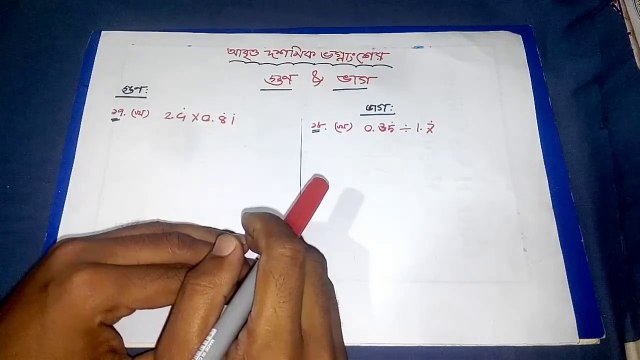 আবৃত দশমিক ভগ্নাংশের
গুণ & ভাগ
গুণ:
১৭. (খ) 2.4̇ × 0.8̇1̇
ভাগ:
১৮. (খ) 0.35̇ ÷ 1.7̇